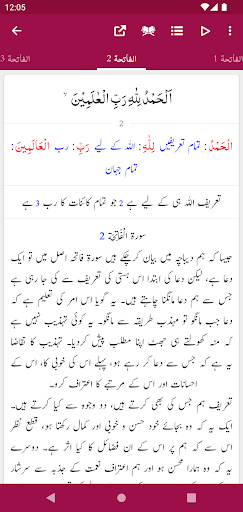 12:05
الفاتحة 3
الفاتحة 2
الفاتحة 1
اَلْحَمْدُ لِلّٰهِ رَبِّ الْعٰلَمِیْنَ
2
اَلْحَمْدُ: تمام تعریفیں لِلّٰهِ: اللہ کے لیے رَبِّ: رب الْعَالَمِیْنَ:
تمام جہان
تعریف اللہ ہی کے لیے ہے 2 جو تمام کائنات کا رب 3 ہے
سورۃ الْفَاتِحَة 2
جیسا کہ ہم دیباچہ میں بیان کرچکے ہیں سورۃ فاتحہ اصل میں تو ایک
دعا ہے، لیکن دعا کی ابتدا اس ہستی کی تعریف سے کی جا رہی ہے
جس سے ہم دعا مانگنا چاہتے ہیں۔ یہ گویا اس امر کی تعلیم ہے کہ
دعا جب مانگو تو مہذب طریقہ سے مانگو۔ یہ کوئی تہذیب نہیں ہے
کہ منہ کھولتے ہی جھٹ اپنا مطلب پیش کردیا۔ تہذیب کا تقاضا
یہ ہے کہ جس سے دعا کر رہے ہو، پہلے اس کی خوبی کا، اس کے
احسانات اور اس کے مرتبے کا اعتراف کرو۔
تعریف ہم جس کی بھی کرتے ہیں، دو وجوہ سے کیا کرتے ہیں۔
ایک یہ کہ وہ بجائے خود حسن و خوبی اور کمال رکھتا ہو، قطع نظر
اس سے کہ ہم پر اس کے ان فضائل کا کیا اثر ہے۔ دوسرے
یہ کہ وہ ہمارا محسن ہو اور ہم اعتراف نعمت کے جذبہ سے